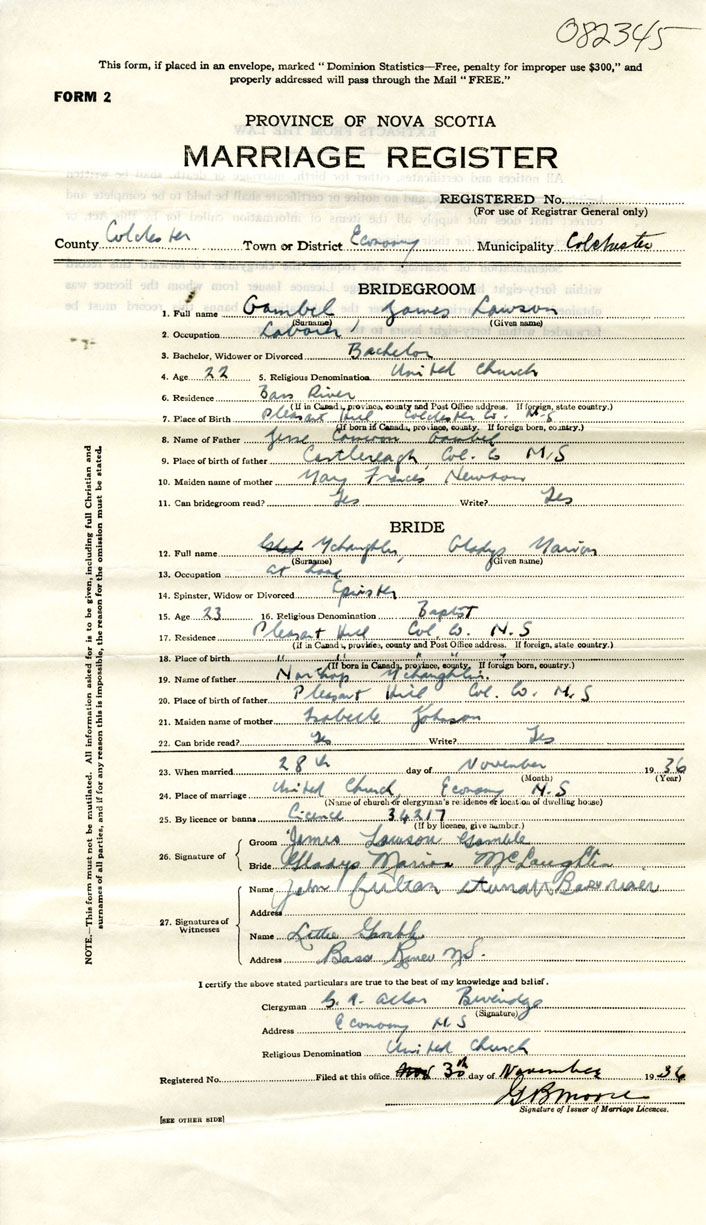 082345
This form, if placed in an envelope, marked "Dominion Statistics—Free, penalty for improper use $300," and
properly addressed will pass through the Mail "FREE."
FORM 2
PROVINCE OF NOVA SCOTIA
MARRIAGE REGISTER
REGISTERED No.
(For use of Registrar General only)
County Colchester Town or District Economy Municipality Colchester
BRIDEGROOM
1. Full name Gambel, James Lawson
(Surname) (Given name)
2. Occupation Laborer
3. Bachelor, Widower or Divorced Bachelor
4. Age 22 5. Religious Denomination United Church
6. Residence Bass River
(If in Canada, province, county and Post Office address. If foreign, state country.)
7. Place of Birth Pleasant Hill Colchester Co. N.S
(If born in Canada, province, county. If foreign born, country.)
8. Name of Father Jesse Cameron Gambel
9. Place of birth of father Castlereagh, Col. Co N.S
10. Maiden name of mother Mary Frances Newson
11. Can bridegroom read? Yes Write? Yes
BRIDE
12. Full name McLaughlin, Gladys Marion
(Surname) (Given name)
13. Occupation at home
14. Spinster, Widow or Divorced Spinster
15. Age 23 16. Religious Denomination Baptist
17. Residence Pleasant Hill Col. Co. N.S
(If in Canada, province, county and Post Office address. If foreign, state country.)
18. Place of birth " " " "
(If born in Canada, province, county. If foreign born, country.)
19. Name of father Northop McLaughlin.
20. Place of birth of father Pleasant Hill Col. Co. N.S
21. Maiden name of mother Isabelle Johnson
22. Can bride read? Yes Write? Yes
23. When married 28th day of November 1936
(Month) (Year)
24. Place of marriage United Church, Economy N.S
(Name of church or clergyman's residence or location of dwelling house)
25. By licence or banns Licence 34217
(If by licence, give number.)
26. Signature of
Groom James Lawson Gamble
Bride Gladys Marion McLaughlin
27. Signatures of Witnesses
Name John Fulton Bass river
Address
Name Lottie Gamble
Address Bass River NS.
I certify the above stated particulars are true to the best of my knowledge and belief.
Clergyman Allan Beveridge
(Signature)
Address Economy N.S
Religious Denomination United Church
Registered No. Filed at this office Nov 30th day of November 1936
G B Moore
Signature of Issuer of Marriage Licences.
[SEE OTHER SIDE]
NOTE.—This form must not be mutilated. All information asked for is to be given, including full Christian and
surnames of all parties, and if for any reason this is impossible, the reason for the omission must be stated.